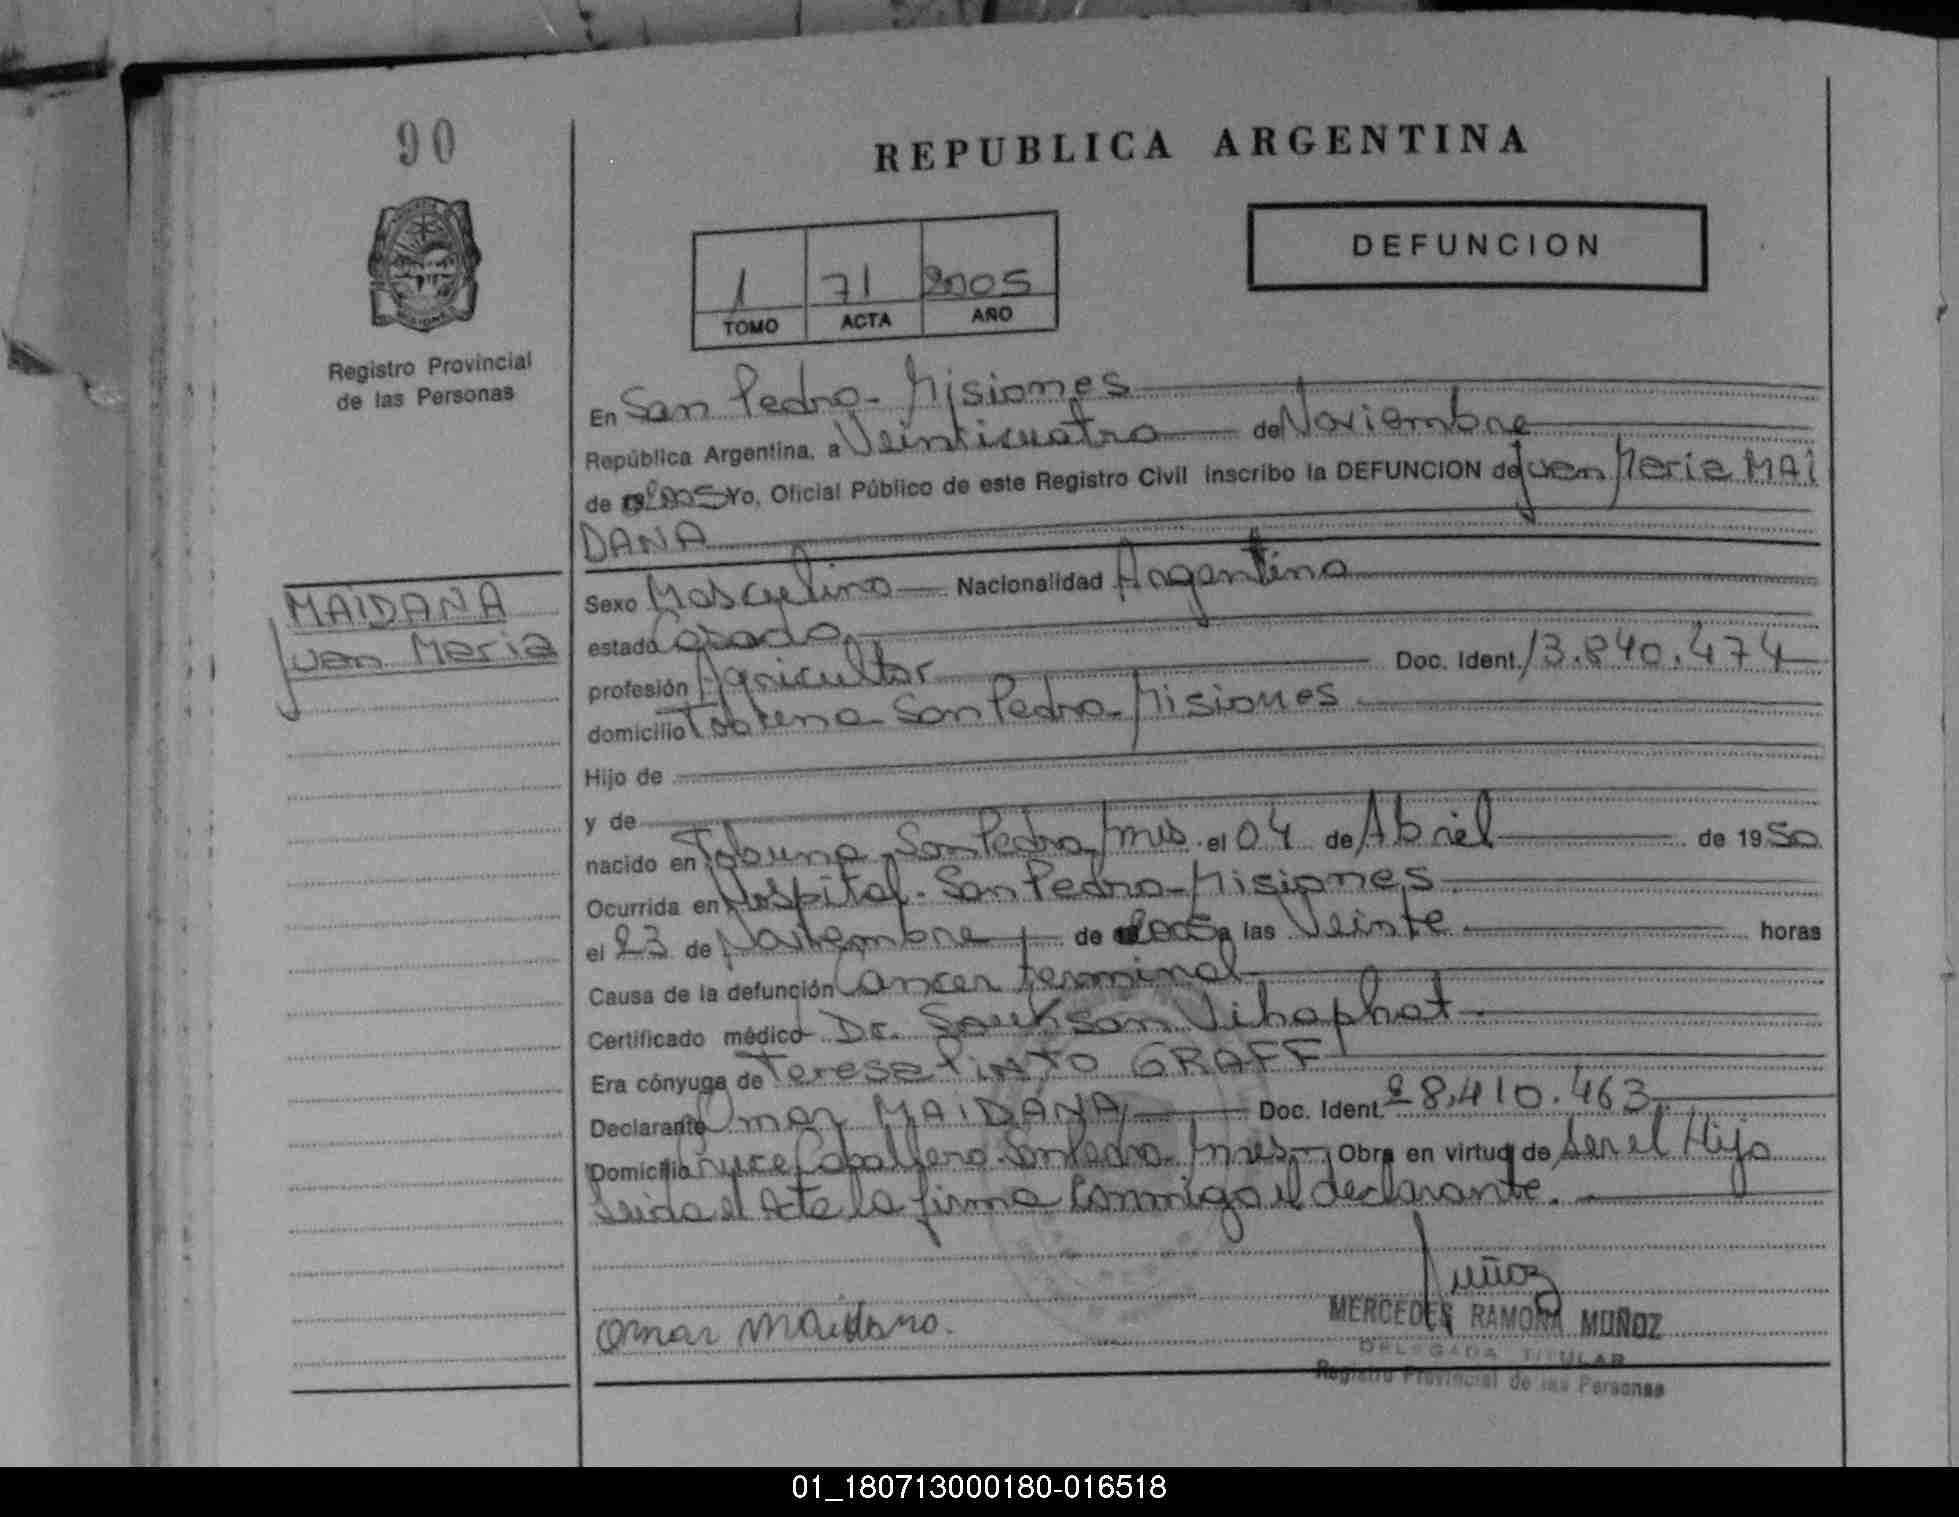 90
REPUBLICA ARGENTINA
DEFUNCION
1 71 2005
TOMO ACTA AÑO
Registro Provincial
de las Personas
En San Pedro - Misiones
República Argentina, a Veinticuatro de Noviembre
de 2005 Yo, Oficial Público de este Registro Civil inscribo la DEFUNCION de Juan Maria MAI
DANA
MAIDANA
Juan Maria
Sexo Masculino Nacionalidad Argentina
estado Casado
profesión Agricultor Doc. Ident. 13.840.474
domicilio Tobuna - San Pedro - Misiones
Hijo de
y de
nacido en Tobuna, San Pedro, Mnes. el 04 de Abril de 1950
Ocurrida en Hospital - San Pedro - Misiones
el 23 de Noviembre de 2005 a las Veinte horas
Causa de la defunción Cancer terminal
Certificado médico Dr. Souksan Vihaphat
Era cónyuge de Teresa PINTO GRAFF
Declarante Omar MAIDANA Doc. Ident. 28.410.463
Domicilio Cruce Caballero - San Pedro - Mnes Obra en virtud de Ser el Hijo
Leida el Acta la firma conmigo el declarante.
Omar Maidana.
Muñoz
MERCEDES RAMONA MUÑOZ
DELEGADA TITULAR
Registro Provincial de las Personas
01_180713000180-016518